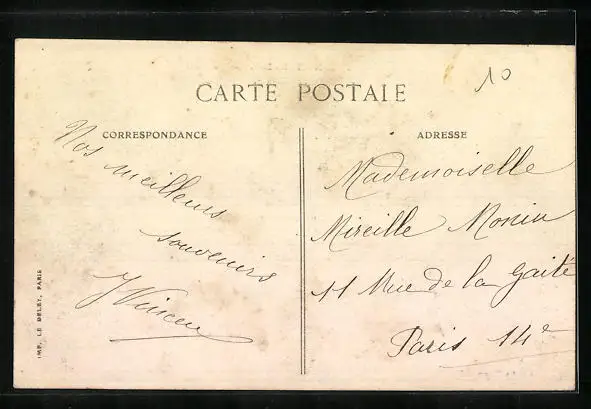 10
CARTE POSTALE
CORRESPONDANCE
Nos meilleurs
souvenirs
ADRESSE
Mademoiselle
Mireille Monin
11 Rue de la Gaité
Paris 14e
IMP. LE DELEY, PARIS